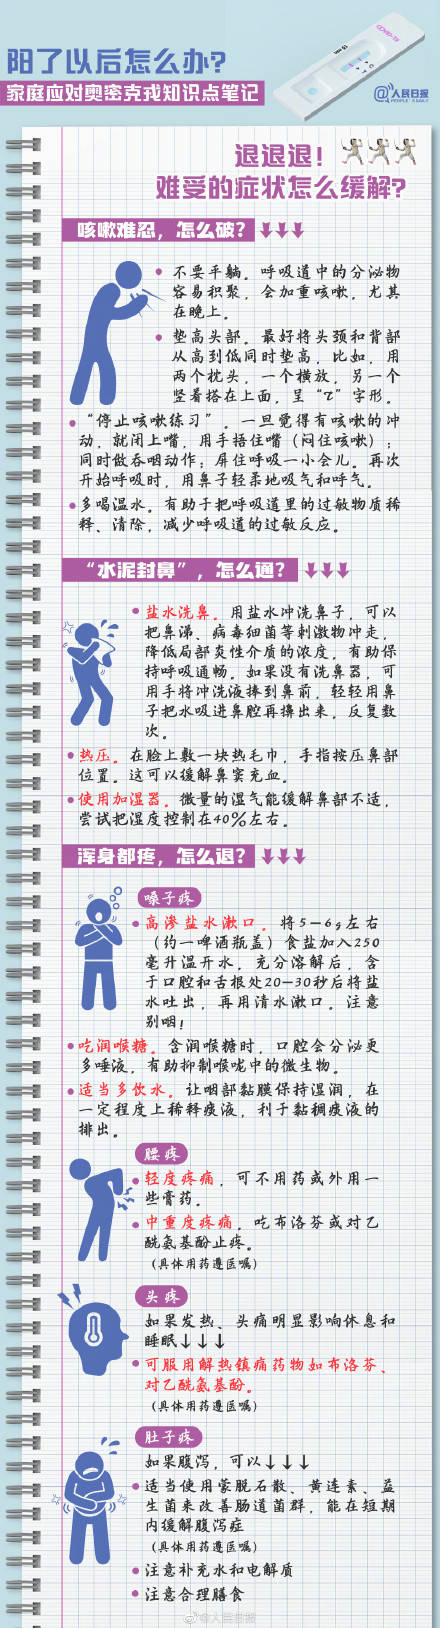 阳了以后怎么办？
家庭应对奥密克戎知识点笔记
COVID-19
@人民日报
PEOPLE'S DAILY
退退退！
难受的症状怎么缓解？
咳嗽难忍，怎么破？
不要平躺。呼吸道中的分泌物
容易积聚，会加重咳嗽，尤其
在晚上。
垫高头部。最好将头颈和背部
从高到低同时垫高，比如，用
两个枕头，一个横放，另一个
竖着搭在上面，呈“乙”字形。
“停止咳嗽练习”。一旦觉得有咳嗽的冲
动，就闭上嘴，用手捂住嘴（闷住咳嗽）；
同时做吞咽动作；屏住呼吸一小会儿。再次
开始呼吸时，用鼻子轻柔地吸气和呼气。
多喝温水。有助于把呼吸道里的过敏物质稀
释、清除，减少呼吸道的过敏反应。
“水泥封鼻”，怎么通？
盐水洗鼻。用盐水冲洗鼻子，可以
把鼻涕、病毒细菌等刺激物冲走，
降低局部炎性介质的浓度，有助保
持呼吸通畅。如果没有洗鼻器，可
用手将冲洗液捧到鼻前，轻轻用鼻
子把水吸进鼻腔再擤出来，反复数
次。
热压。在脸上敷一块热毛巾，手指按压鼻部
位置。这可以缓解鼻窦充血。
使用加湿器。微量的湿气能缓解鼻部不适，
尝试把湿度控制在40%左右。
浑身都疼，怎么退？
嗓子疼
高渗盐水漱口。将5—6g左右
（约一啤酒瓶盖）食盐加入250
毫升温开水，充分溶解后，含
于口腔和舌根处20—30秒后将盐
水吐出，再用清水漱口。注意
别咽！
吃润喉糖。含润喉糖时，口腔会分泌更
多唾液，有助抑制喉咙中的微生物。
适当多饮水。让咽部黏膜保持湿润，在
一定程度上稀释痰液，利于黏稠痰液的
排出。
腰疼
轻度疼痛，可不用药或外用一
些膏药。
中重度疼痛，吃布洛芬或对乙
酰氨基酚止疼。
（具体用药遵医嘱）
头疼
如果发热、头痛明显影响休息和
睡眠↓↓↓
可服用解热镇痛药物如布洛芬、
对乙酰氨基酚。
（具体用药遵医嘱）
肚子疼
如果腹泻，可以↓↓↓
适当使用蒙脱石散、黄连素、益
生菌来改善肠道菌群，能在短期
内缓解腹泻症
（具体用药遵医嘱）
注意补充水和电解质
注意合理膳食
@人民日报